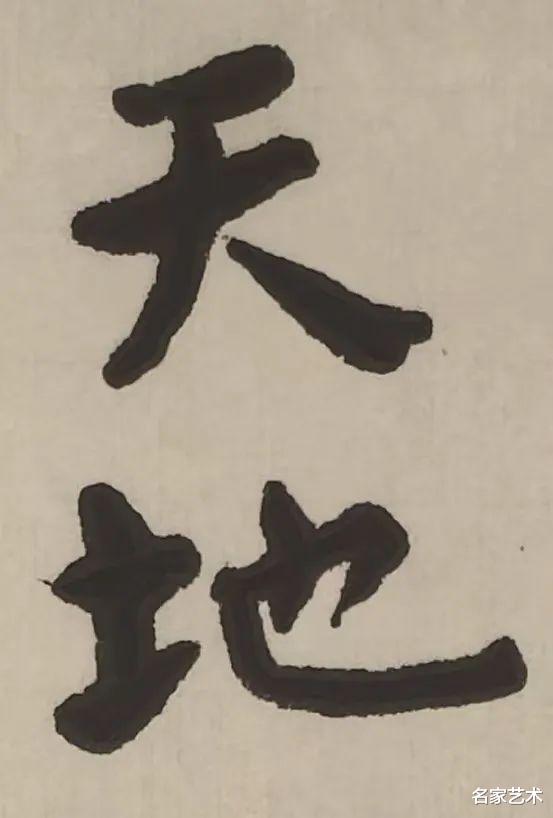 天
地
名家艺术